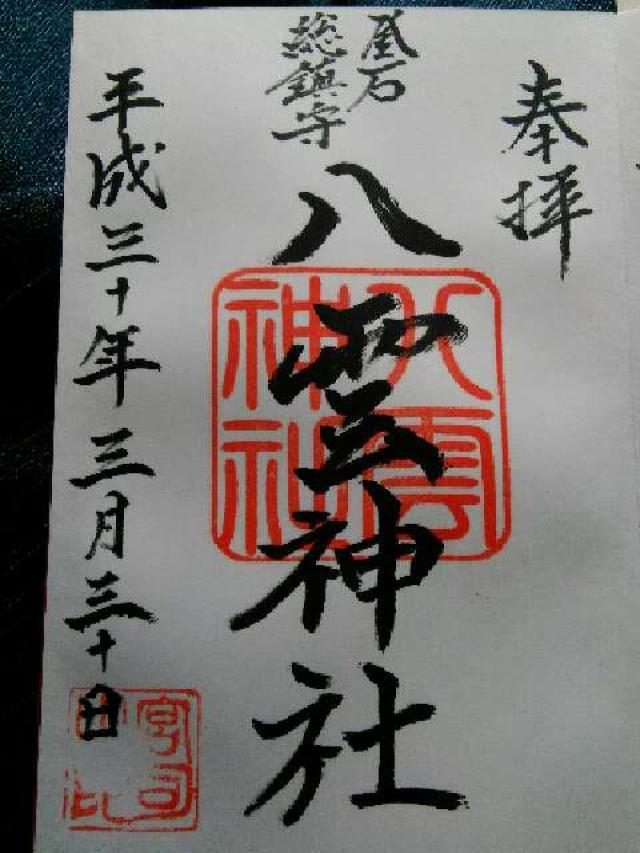 奉拝
釜石
総鎮守
八雲神社
八雲
神社
平成三十年三月三十日
宮司